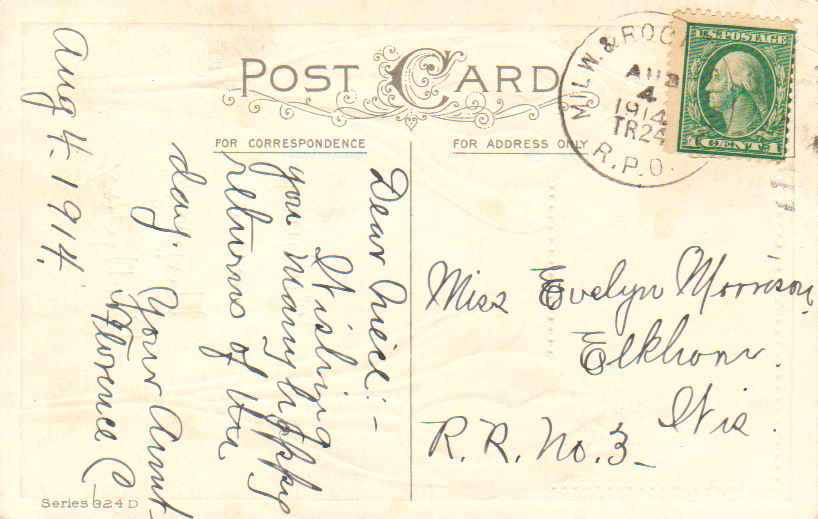 POST CARD
FOR CORRESPONDENCE
FOR ADDRESS ONLY
U.S. POSTAGE
1 CENT 1
MILW. & ROC
AUG
4
1914
TR24
R.P.O.
Dear Niece:-
Wishing
you many happy
returns of the
day.
Your Aunt
Florence C.
Aug 4. 1914.
Miss Evelyn Morrison,
Elkhorn.
Wis.
R. R. No. 3-
Series 324 D